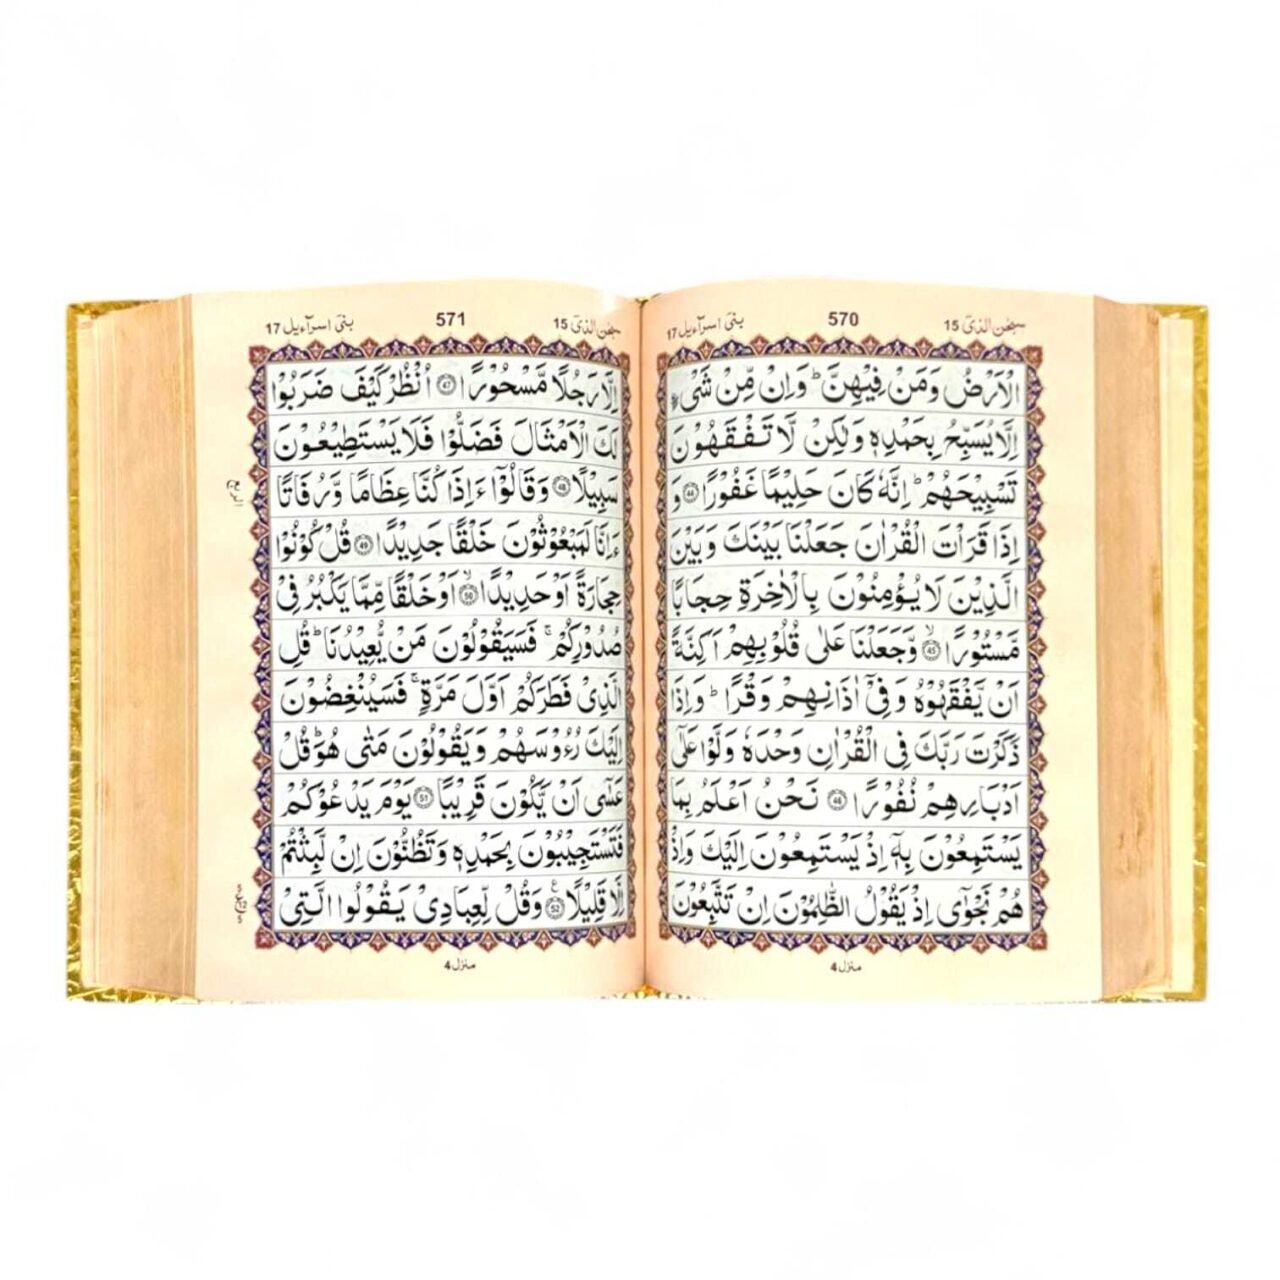 سبحٰن الذیٓ 15
570
بنیٓ اسرآءیل 17
الۡاَرۡضُ وَمَنۡ فِيۡهِنَّ ؕ وَاِنۡ مِّنۡ شَىۡءٍ
اِلَّا يُسَبِّحُ بِحَمۡدِهٖ وَلٰكِنۡ لَّا تَفۡقَهُوۡنَ
تَسۡبِيۡحَهُمۡ ؕ اِنَّهٗ كَانَ حَلِيۡمًا غَفُوۡرًا 44 وَ
اِذَا قَرَاۡتَ الۡقُرۡاٰنَ جَعَلۡنَا بَيۡنَكَ وَبَيۡنَ
الَّذِيۡنَ لَا يُؤۡمِنُوۡنَ بِالۡاٰخِرَةِ حِجَابًا
مَّسۡتُوۡرًا ۙ 45 وَّجَعَلۡنَا عَلٰى قُلُوۡبِهِمۡ اَكِنَّةً
اَنۡ يَّفۡقَهُوۡهُ وَفِىۡۤ اٰذَانِهِمۡ وَقۡرًا ؕ وَاِذَا
ذَكَرۡتَ رَبَّكَ فِى الۡقُرۡاٰنِ وَحۡدَهٗ وَلَّوۡا عَلٰٓى
اَدۡبَارِهِمۡ نُفُوۡرًا 46 نَحۡنُ اَعۡلَمُ بِمَا
يَسۡتَمِعُوۡنَ بِهٖۤ اِذۡ يَسۡتَمِعُوۡنَ اِلَيۡكَ وَاِذۡ
هُمۡ نَجۡوٰٓى اِذۡ يَقُوۡلُ الظّٰلِمُوۡنَ اِنۡ تَتَّبِعُوۡنَ
منزل 4
سبحٰن الذیٓ 15
571
بنیٓ اسرآءیل 17
اِلَّا رَجُلًا مَّسۡحُوۡرًا 47 اُنْظُرۡ كَيۡفَ ضَرَبُوۡا
لَكَ الۡاَمۡثَالَ فَضَلُّوۡا فَلَا يَسۡتَطِيۡعُوۡنَ
سَبِيۡلًا 48 وَقَالُوۡۤا ءَاِذَا كُنَّا عِظَامًا وَّرُفَاتًا
ءَاِنَّا لَمَبۡعُوۡثُوۡنَ خَلۡقًا جَدِيۡدًا 49 قُلۡ كُوۡنُوۡا
حِجَارَةً اَوۡ حَدِيۡدًا ۙ 50 اَوۡ خَلۡقًا مِّمَّا يَكۡبُرُ فِىۡ
صُدُوۡرِكُمۡ ۚ فَسَيَقُوۡلُوۡنَ مَنۡ يُّعِيۡدُنَا ؕ قُلِ
الَّذِىۡ فَطَرَكُمۡ اَوَّلَ مَرَّةٍ ۚ فَسَيُنۡغِضُوۡنَ
اِلَيۡكَ رُءُوۡسَهُمۡ وَيَقُوۡلُوۡنَ مَتٰى هُوَ ؕ قُلۡ
عَسٰٓى اَنۡ يَّكُوۡنَ قَرِيۡبًا 51 يَوۡمَ يَدۡعُوۡكُمۡ
فَتَسۡتَجِيۡبُوۡنَ بِحَمۡدِهٖ وَتَظُنُّوۡنَ اِنۡ لَّبِثۡتُمۡ
اِلَّا قَلِيۡلًا 52 ع وَقُلۡ لِّعِبَادِىۡ يَقُوۡلُوا الَّتِىۡ
الربع
منزل 4